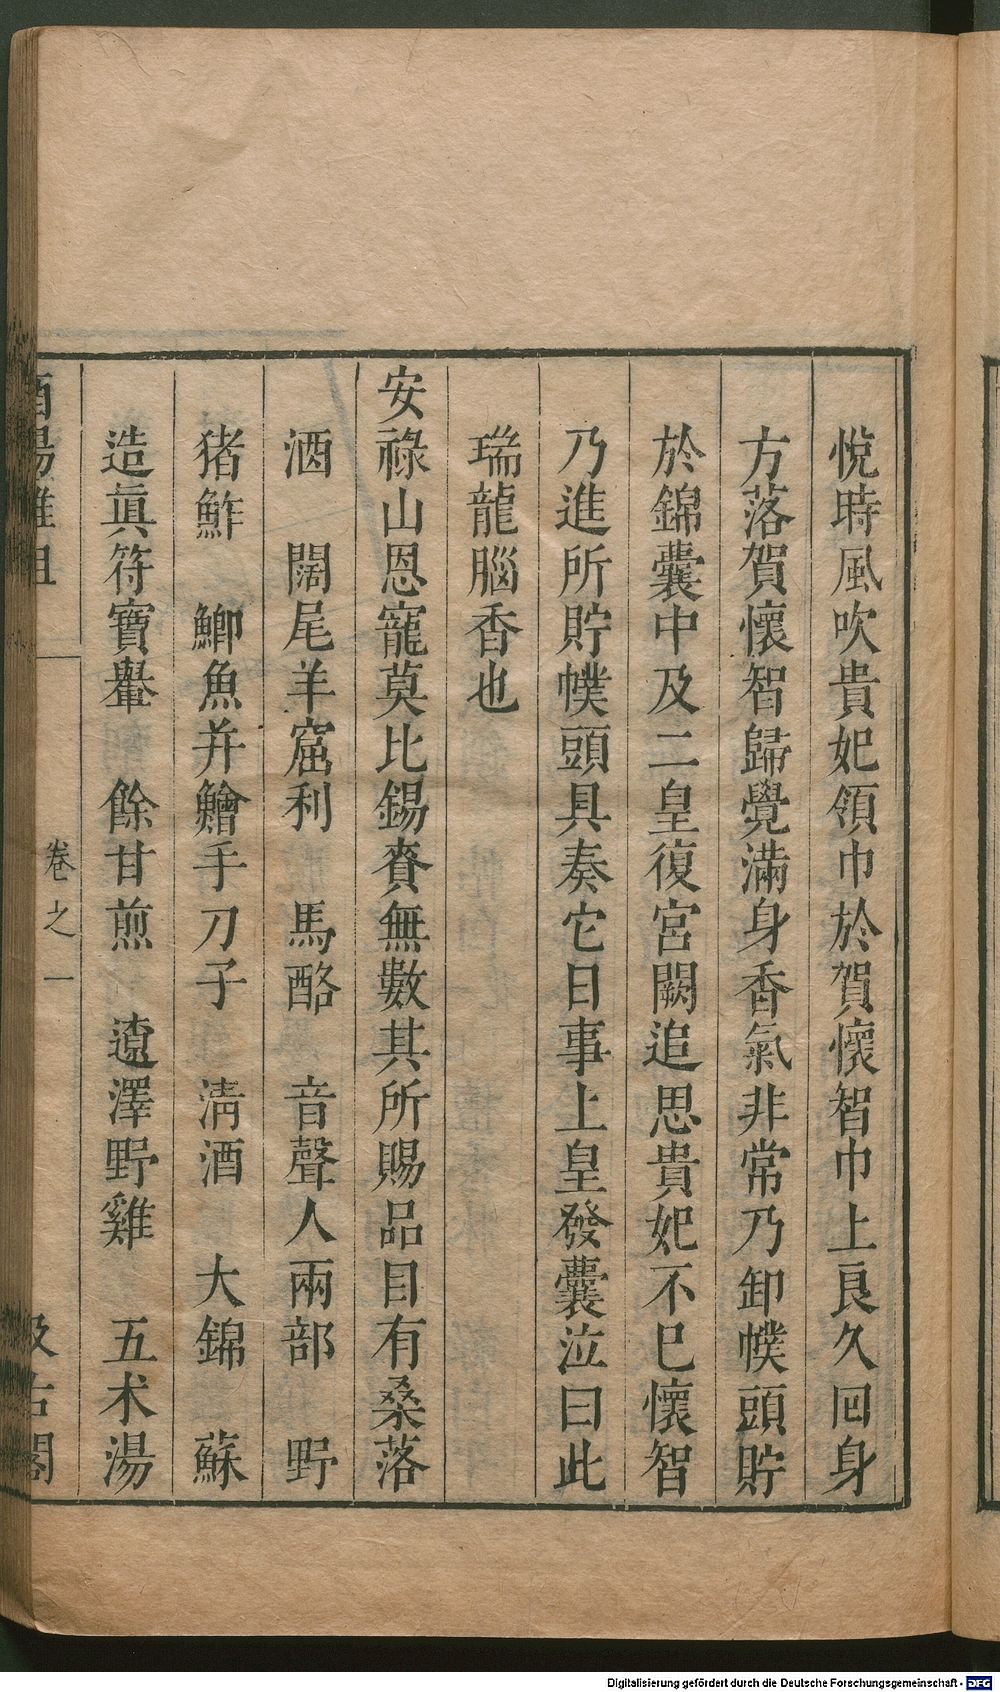 悅時風吹貴妃領巾於賀懷智巾上良久回身
方落賀懷智歸覺滿身香氣非常乃卸幞頭貯
於錦囊中及二皇復宮闕追思貴妃不已懷智
乃進所貯幞頭具奏它日事上皇發囊泣曰此
瑞龍腦香也
安祿山恩寵莫比錫賚無數其所賜品目有桑落
酒　闊尾羊窟利　馬酪　音聲人兩部　野
猪鮓　鯽魚幷鱠手刀子　清酒　大錦　蘇
造眞符寶轝　餘甘煎　遼澤野雞　五术湯
酉陽雜俎　卷之一　汲古閣
Digitalisierung gefördert durch die Deutsche Forschungsgemeinschaft - DFG